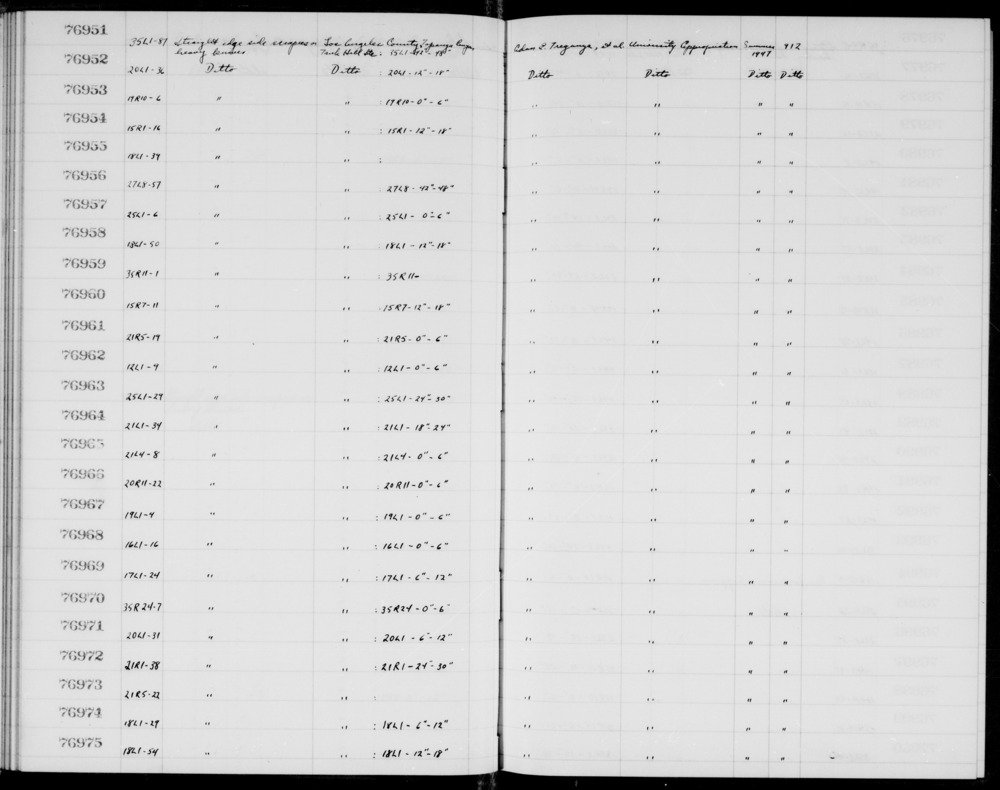 76951 35L1-87 Straight edge side scrapers or Los Angeles County, Topanga Canyon Chas E Treganza, et al University Appropriation Summer 912
heavy knives Tank Hill Site : 1947
76952 20L1-36 Ditto Ditto : 20L1-12"-18" Ditto Ditto Ditto Ditto
76953 19R10-6 " " : 19R10-0"-6" " " " "
76954 15R1-16 " " : 15R1-12"-18" " " " "
76955 18L1-39 " " : " " " "
76956 27L8-57 " " : 27L8-42"-48" " " " "
76957 25L1-6 " " : 25L1-0"-6" " " " "
76958 18L1-50 " " : 18L1-12"-18" " " " "
76959 35R11-1 " " : 35R11- " " " "
76960 15R7-11 " " : 15R7-12"-18" " " " "
76961 21R5-19 " " : 21R5-0"-6" " " " "
76962 12L1-9 " " : 12L1-0"-6" " " " "
76963 25L1-29 " " : 25L1-24"-30" " " " "
76964 21L1-34 " " : 21L1-18"-24" " " " "
76965 21L4-8 " " : 21L4-0"-6" " " " "
76966 20R11-22 " " : 20R11-0"-6" " " " "
76967 19L1-4 " " : 19L1-0"-6" " " " "
76968 16L1-16 " " : 16L1-0"-6" " " " "
76969 17L1-24 " " : 17L1-6"-12" " " " "
76970 35R24-7 " " : 35R24-0"-6" " " " "
76971 20L1-31 " " : 20L1-6"-12" " " " "
76972 21R1-38 " " : 21R1-24"-30" " " " "
76973 21R5-22 " " : " " " "
76974 18L1-29 " " : 18L1-6"-12" " " " "
76975 18L1-54 " " : 18L1-12"-18" " " " "